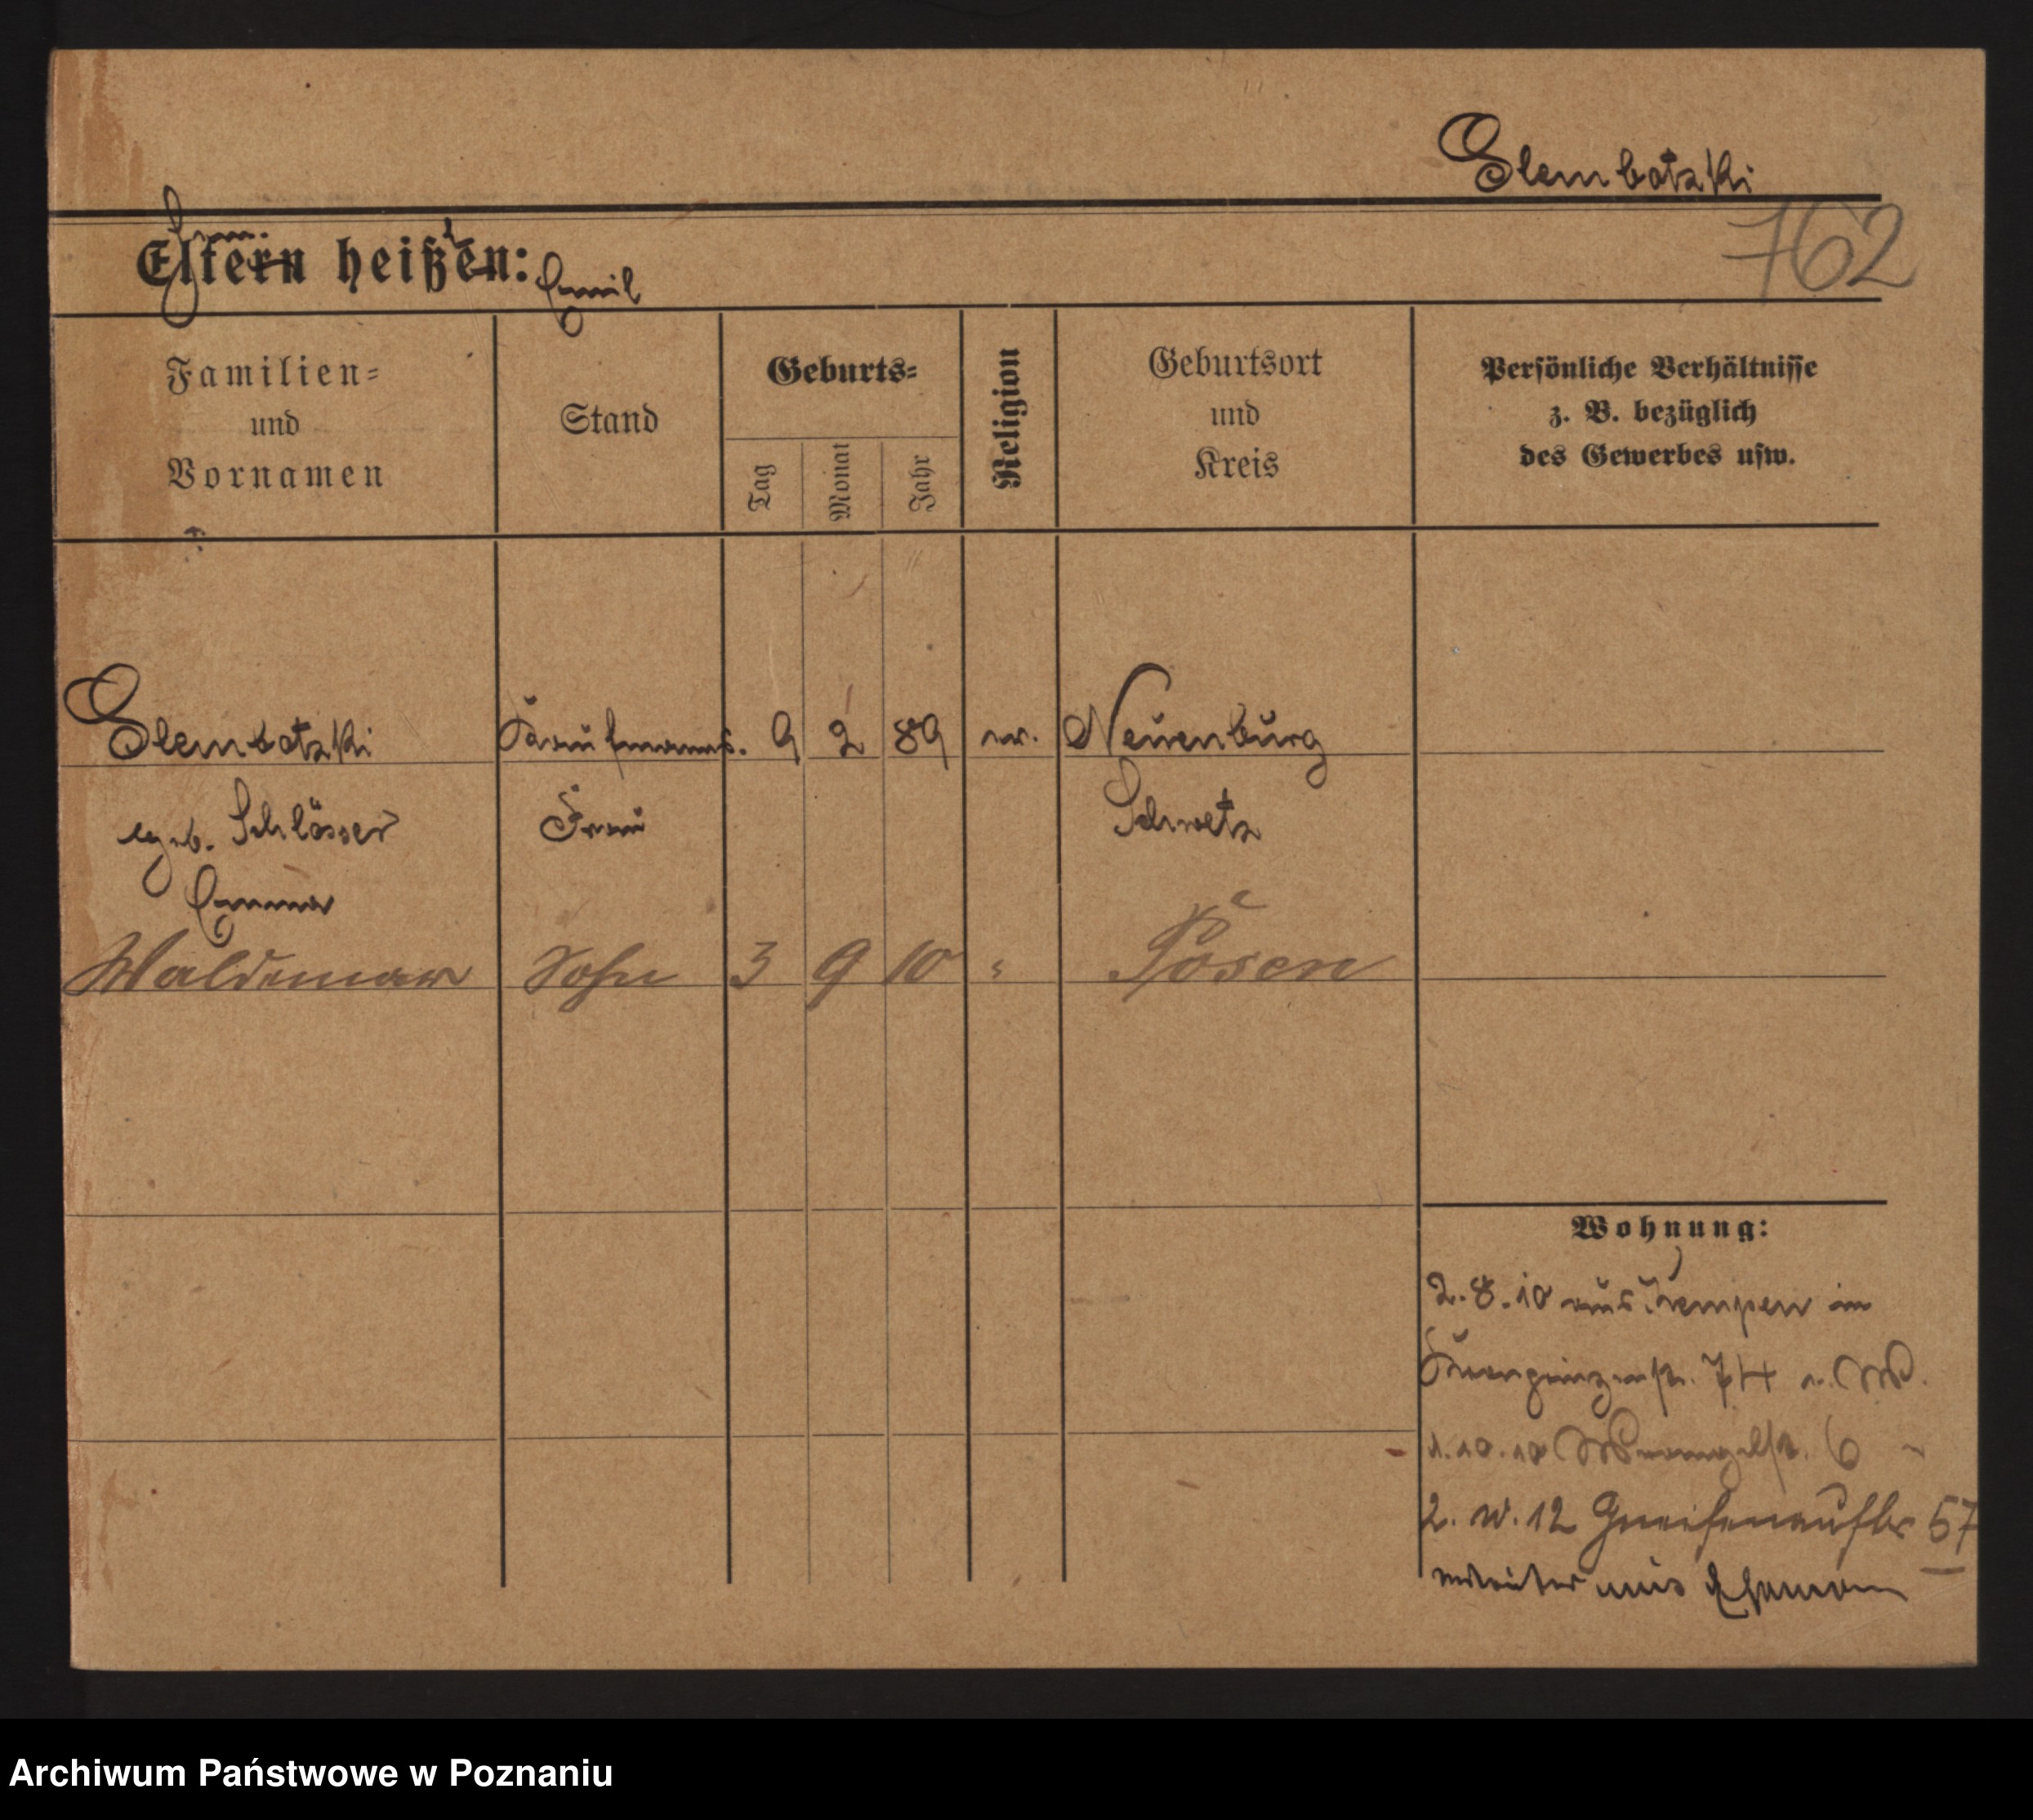 Slembotzki
762
Eltern heißen:
Emil
Familien=
und
Vornamen
Stand
Geburts=
Tag
Monat
Jahr
Religion
Geburtsort
und
Kreis
Persönliche Verhältnisse
z. B. bezüglich
des Gewerbes usw.
Slembotzki Kaufmanns. 9 2 89 ev. Neuenburg
geb. Schlösser Frau Schwetz
Emma
Waldemar Sohn 3 9 10 " Posen
Wohnung:
2.8.10 aus Kempen in
Kronprinzenstr. 74 W.
1.10.10 Wrangelstr. 6
2. IV. 12 Gneisenaustr 57
aus Ehemann
Archiwum Państwowe w Poznaniu